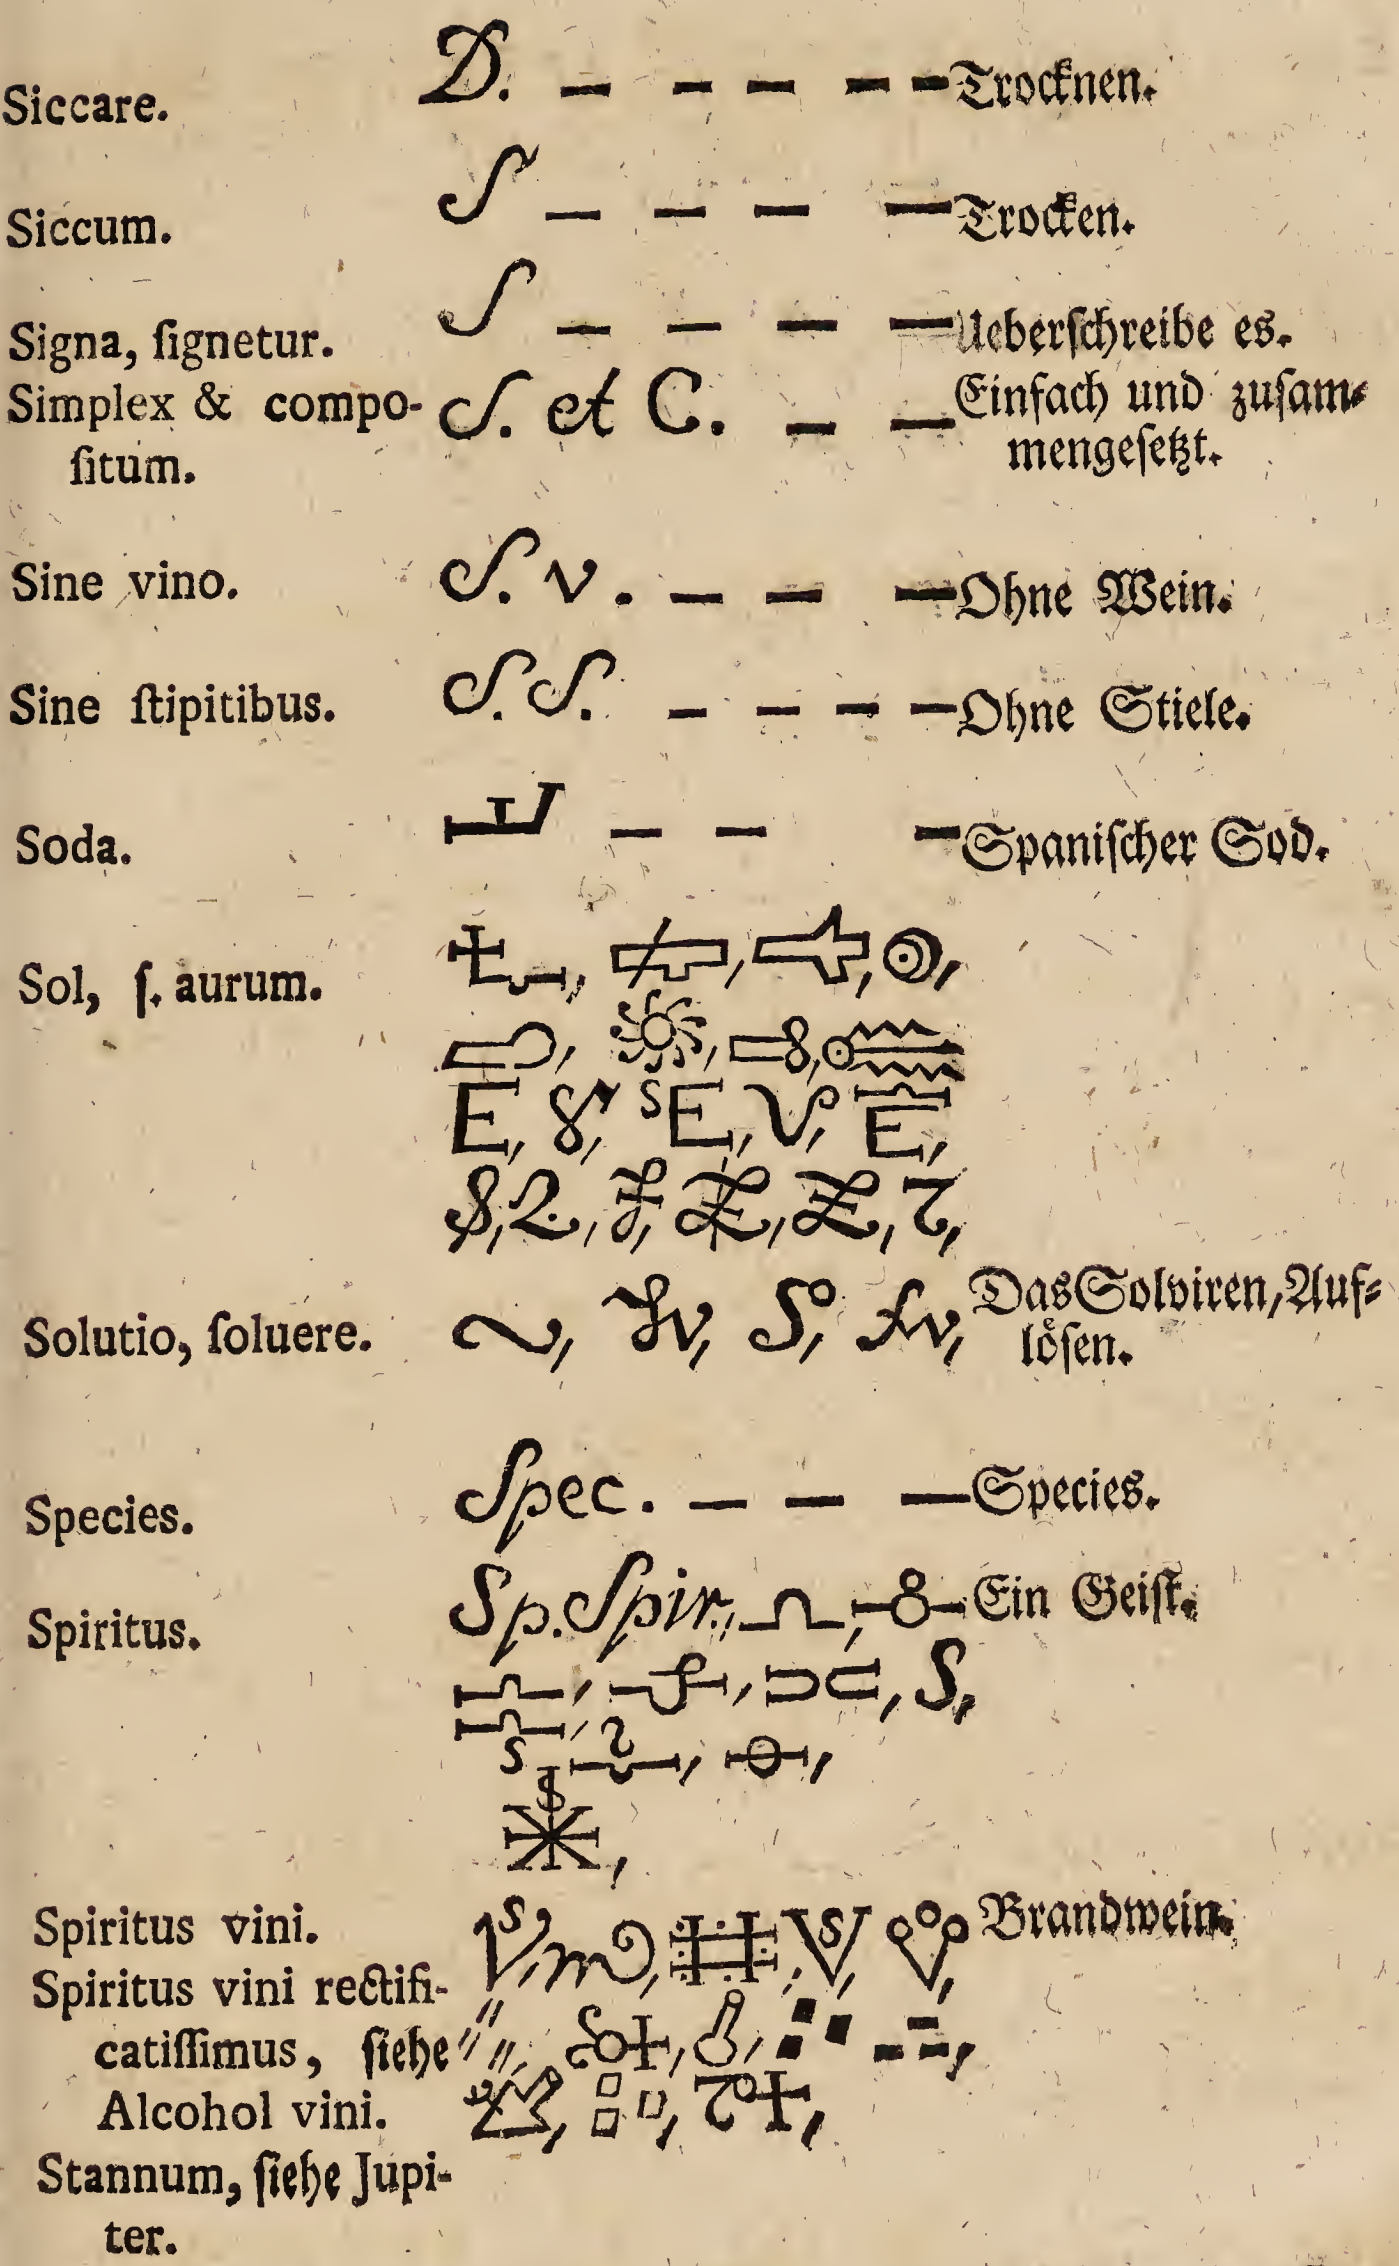 Siccare. D. — — — — — Trocknen.
Siccum. S — — — — Trocken.
Signa, ſignetur. S — — — — Ueberſchreibe es.
Simplex & compo- S. et C. — — Einfach und zuſam⸗
ſitum. mengeſetzt.
Sine vino. S. v. — — — Ohne Wein.
Sine ſtipitibus. S. S. — — — — Ohne Stiele.
Soda. — — — Spaniſcher Sod.
Sol, ſ. aurum.
E, 8, SE, V, E,
Solutio, ſoluere. Das Solviren, Auf⸗
löſen.
Species. Spec. — — — Species.
Spiritus. Sp. Spir., Ein Geiſt.
S,
Spiritus vini. Brandwein.
Spiritus vini rectifi-
catiſſimus, ſiehe
Alcohol vini.
Stannum, ſiehe Jupi-
ter.